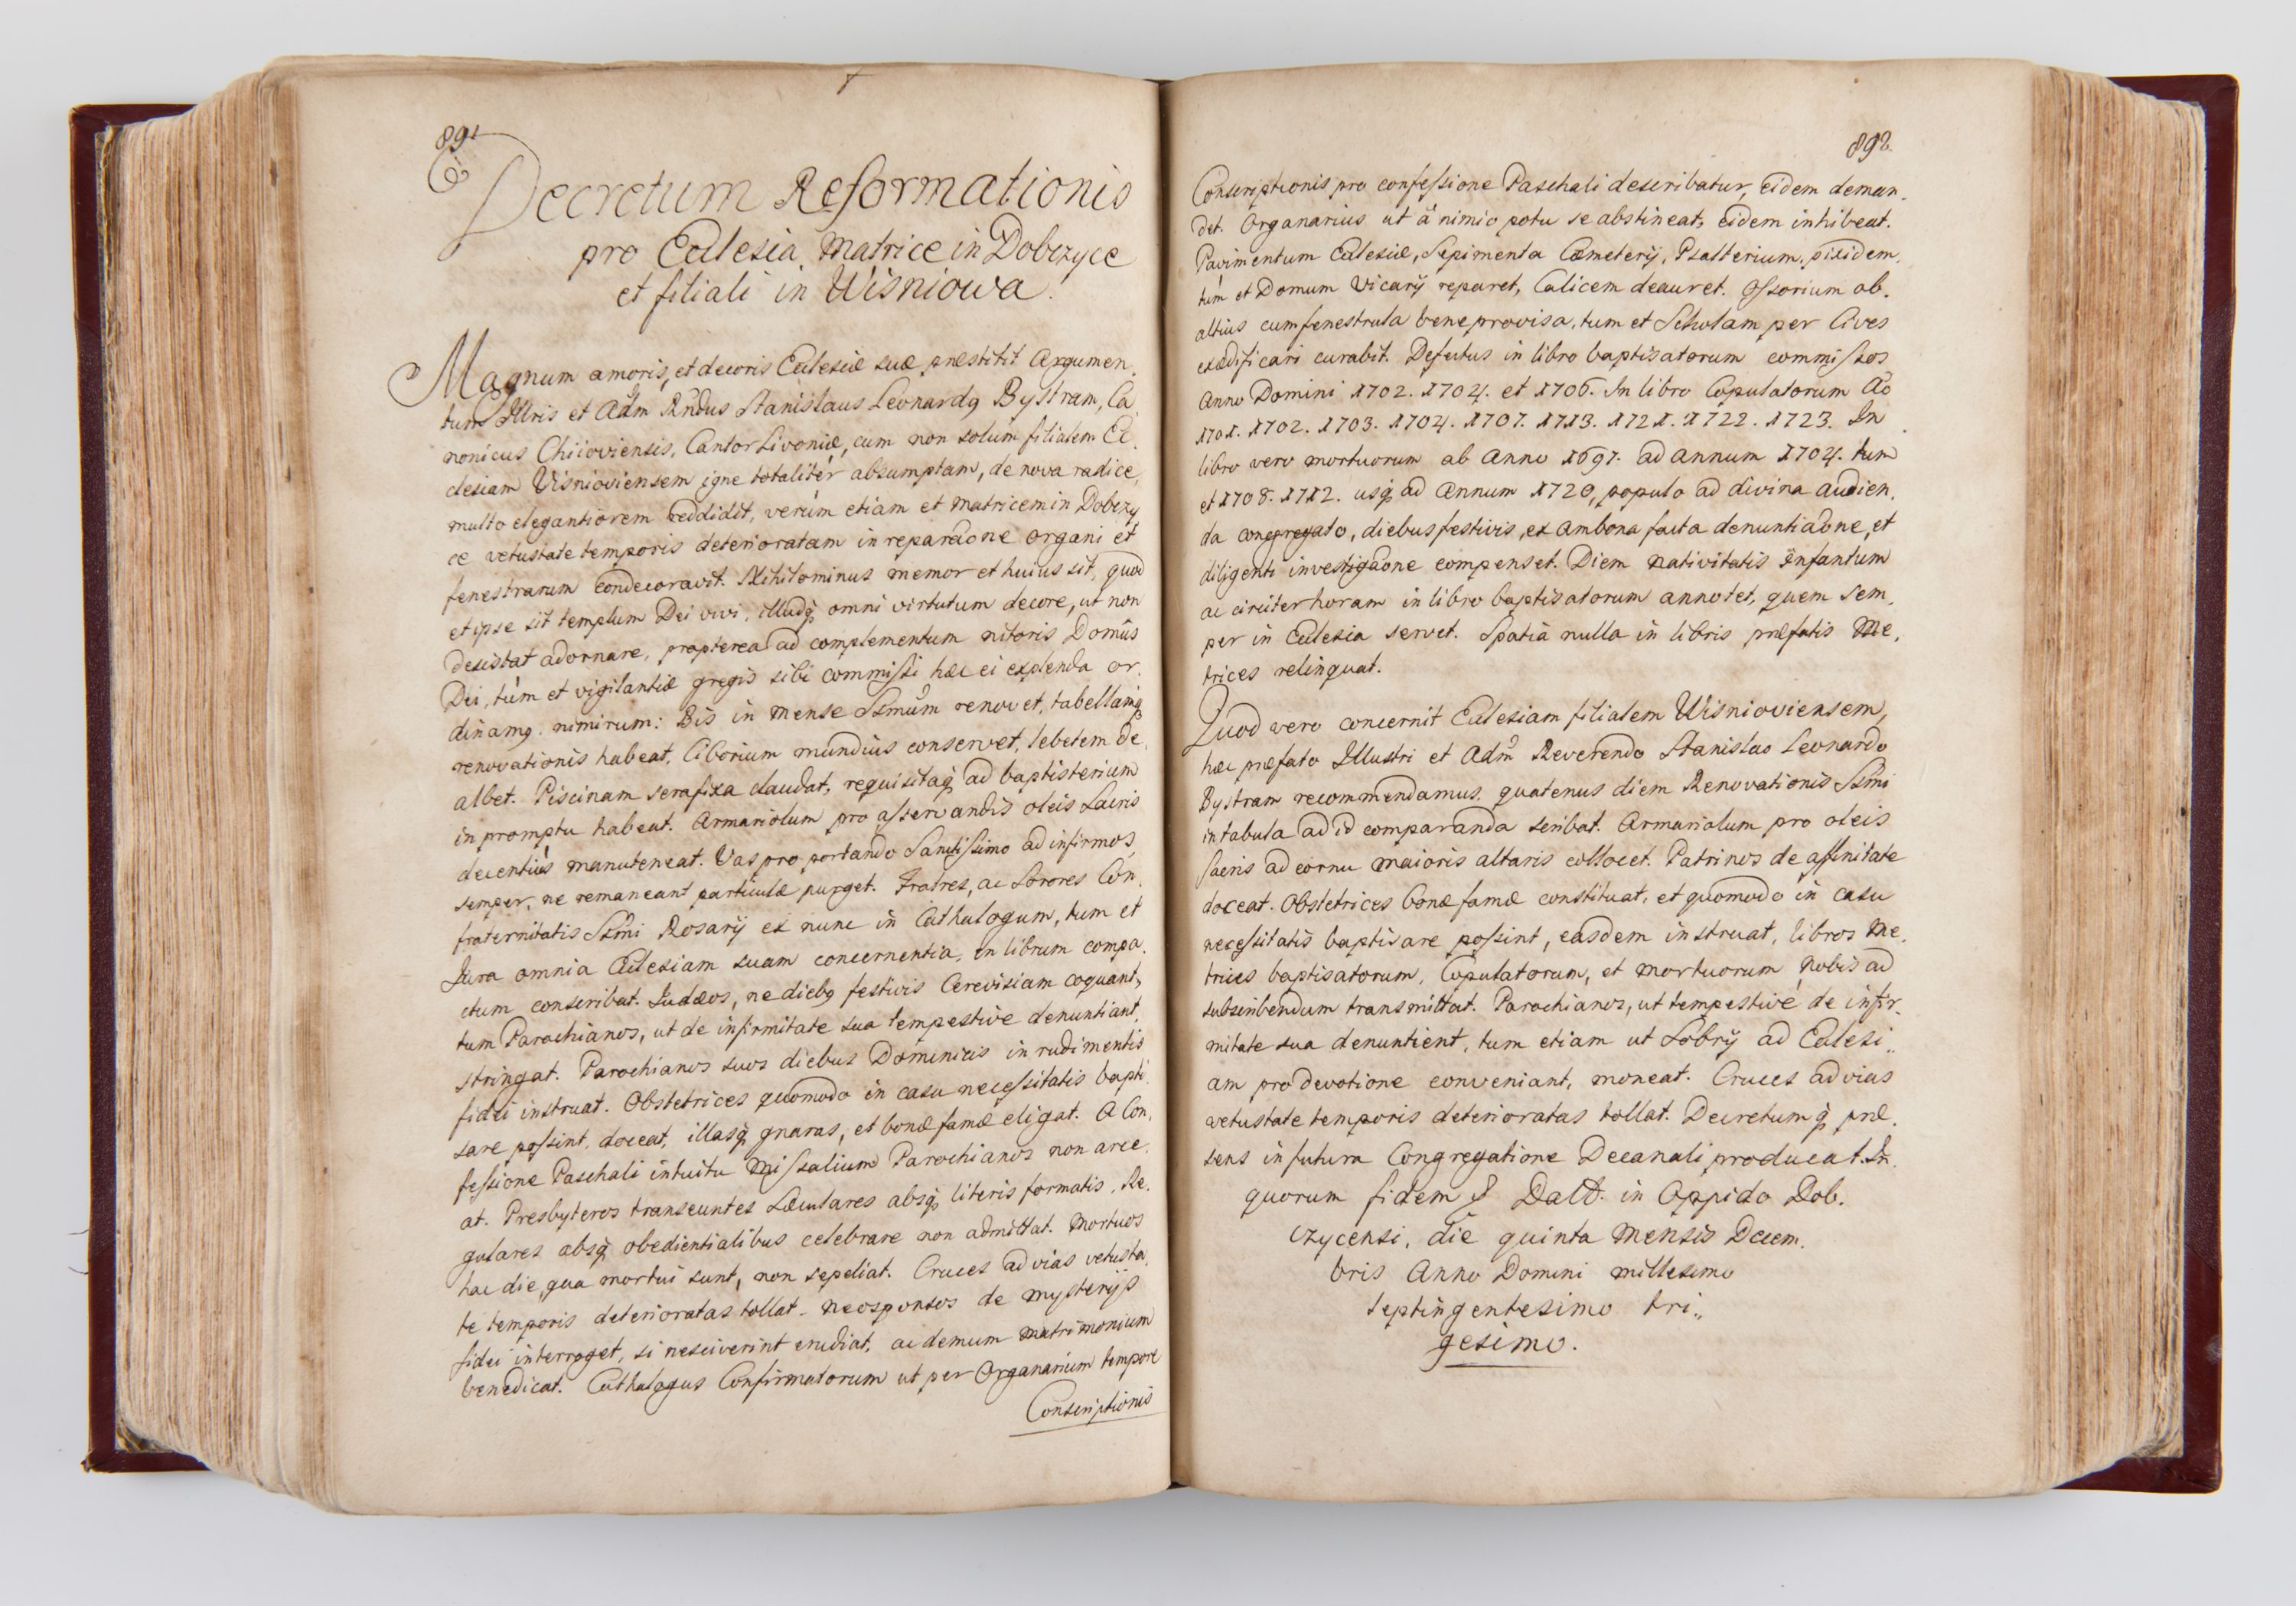 891
Decretum Reformationis
pro Ecclesia Matrice in Dobczyce
et filiali in Wisniowa.
Magnum amoris, et decoris Ecclesiæ suæ præstitit Argumen,
tum Illris et Adm Rndus Stanislaus Leonardq Bystram, Ca
nonicus Chiioviensis, Cantor Livoniæ, cum non solum filialem Ec,
clesiam Visnioviensem igne totalitèr absumptam, de nova radice,
multo elegantiorem reddidit, verùm etiam et Matricem in Dobczy
ce vetustate temporis deterioratam in reparaone organi et
fenestrarum condecoravit. Nihilominus memor et huius sit, quod
et ipse sit templum Dei vivi, illudq omni virtutum decore, ut non
desistat adornare, propterea ad complementum nitoris Domûs
Dei, tùm et vigilantiæ gregis sibi commissi hæc ei explenda or,
dinamq. nimirum: Bis in mense Ssmum renovet, tabellamq
renovationis habeat, Ciborium mundius conservet, lebetem de,
albet. Piscinam sera fixa claudat, requisitaq ad baptisterium
in promptu habeat. Armariolum pro asservandis oleis Sacris
decentiùs manuteneat. Vas pro portando Sanctissimo ad infirmos,
semper, ne remaneant particulæ purget. Fratres, ac Sorores Con,
fraternitatis Ssmi Rosarij ex nunc in Cathalogum, tum et
Jura omnia Ecclesiam suam concernentia, in librum compa,
ctum conscribat. Judæos, ne diebq festivis Cerevisiam coquant,
tum Parochianos, ut de infirmitate sua tempestivè denuntiant,
stringat. Parochianos suos diebus Dominicis in rudimentis
fidei instruat. Obstetrices quomodo in casu necessitatis bapti,
sare possint, doceat, illasq gnaras, et bonæ famæ eligat. A Con,
fessione Paschali intuitu Missalium Parochianos non arce,
at. Presbyteros transeuntes Sæculares absq literis formatis, Re,
gulares absq obedientialibus celebrare non admittat. Mortuos
hac die, qua mortui sunt, non sepeliat. Cruces ad vias vetusta,
te temporis deterioratas tollat. Neosponsos de mysterijs
fidei interroget, si nesciverint erudiat, ac demum matrimonium
benedicat. Cathalogus Confirmatorum ut per Organarium tempore
Conscriptionis
892
Conscriptionis pro confessione Paschali describatur, eidem deman,
det. Organarius ut â nimio potu se abstineat, eidem inhibeat.
Pavimentum Ecclesiæ, Sepimenta Cæmeterij, Psalterium, pixidem,
tùm et Domum Vicarij reparet, Calicem deauret. Ossorium ob,
altius cum fenestrula bene provisa, tum et Scholam per Cives
exædificari curabit. Defectus in libro baptisatorum commissos
Anno Domini 1702. 1704. et 1706. In libro Copulatorum Ao
1701. 1702. 1703. 1704. 1707. 1713. 1721. 1722. 1723. In
libro vero mortuorum ab Anno 1697. ad annum 1704. tum
et 1708. 1712. usq ad Annum 1720, populo ad divina audien,
da congregato, diebus festivis, ex Ambona facta denuntiaone, et
diligenti investigaone compenset. Diem nativitatis infantum
ac circiter horam in libro baptisatorum annotet, quem sem,
per in Ecclesia servet. Spatia nulla in libris præfatis Me,
trices relinquat.
Quod vero concernit Ecclesiam filialem Wisnioviensem,
hæc præfato Illustri et Adm Reverendo Stanislao Leonardo
Bystram recommendamus, quatenus diem Renovationis Ssmi
in tabula ad id comparanda scribat. Armariolum pro oleis
sacris ad cornu maioris altaris collocet. Patrinos de affinitate
doceat. Obstetrices bonæ famæ constituat, et quomodo in casu
necessitatis baptisare possint, easdem instruat, libros Me,
trices baptisatorum, Copulatorum, et mortuorum, Nobis ad
subscribendum transmittat. Parochianos, ut tempestivè de infir,
mitate sua denuntient, tum etiam ut Sobrij ad Ecclesi,,
am pro devotione conveniant, moneat. Cruces ad vias
vetustate temporis deterioratas tollat. Decretumq præ,
sens in futura Congregatione Decanali producat. In,
quorum fidem & Datt. in Oppido Dob,
czycensi, die quinta Mensis Decem,
bris Anno Domini millesimo
septingentesimo tri,,
gesimo.